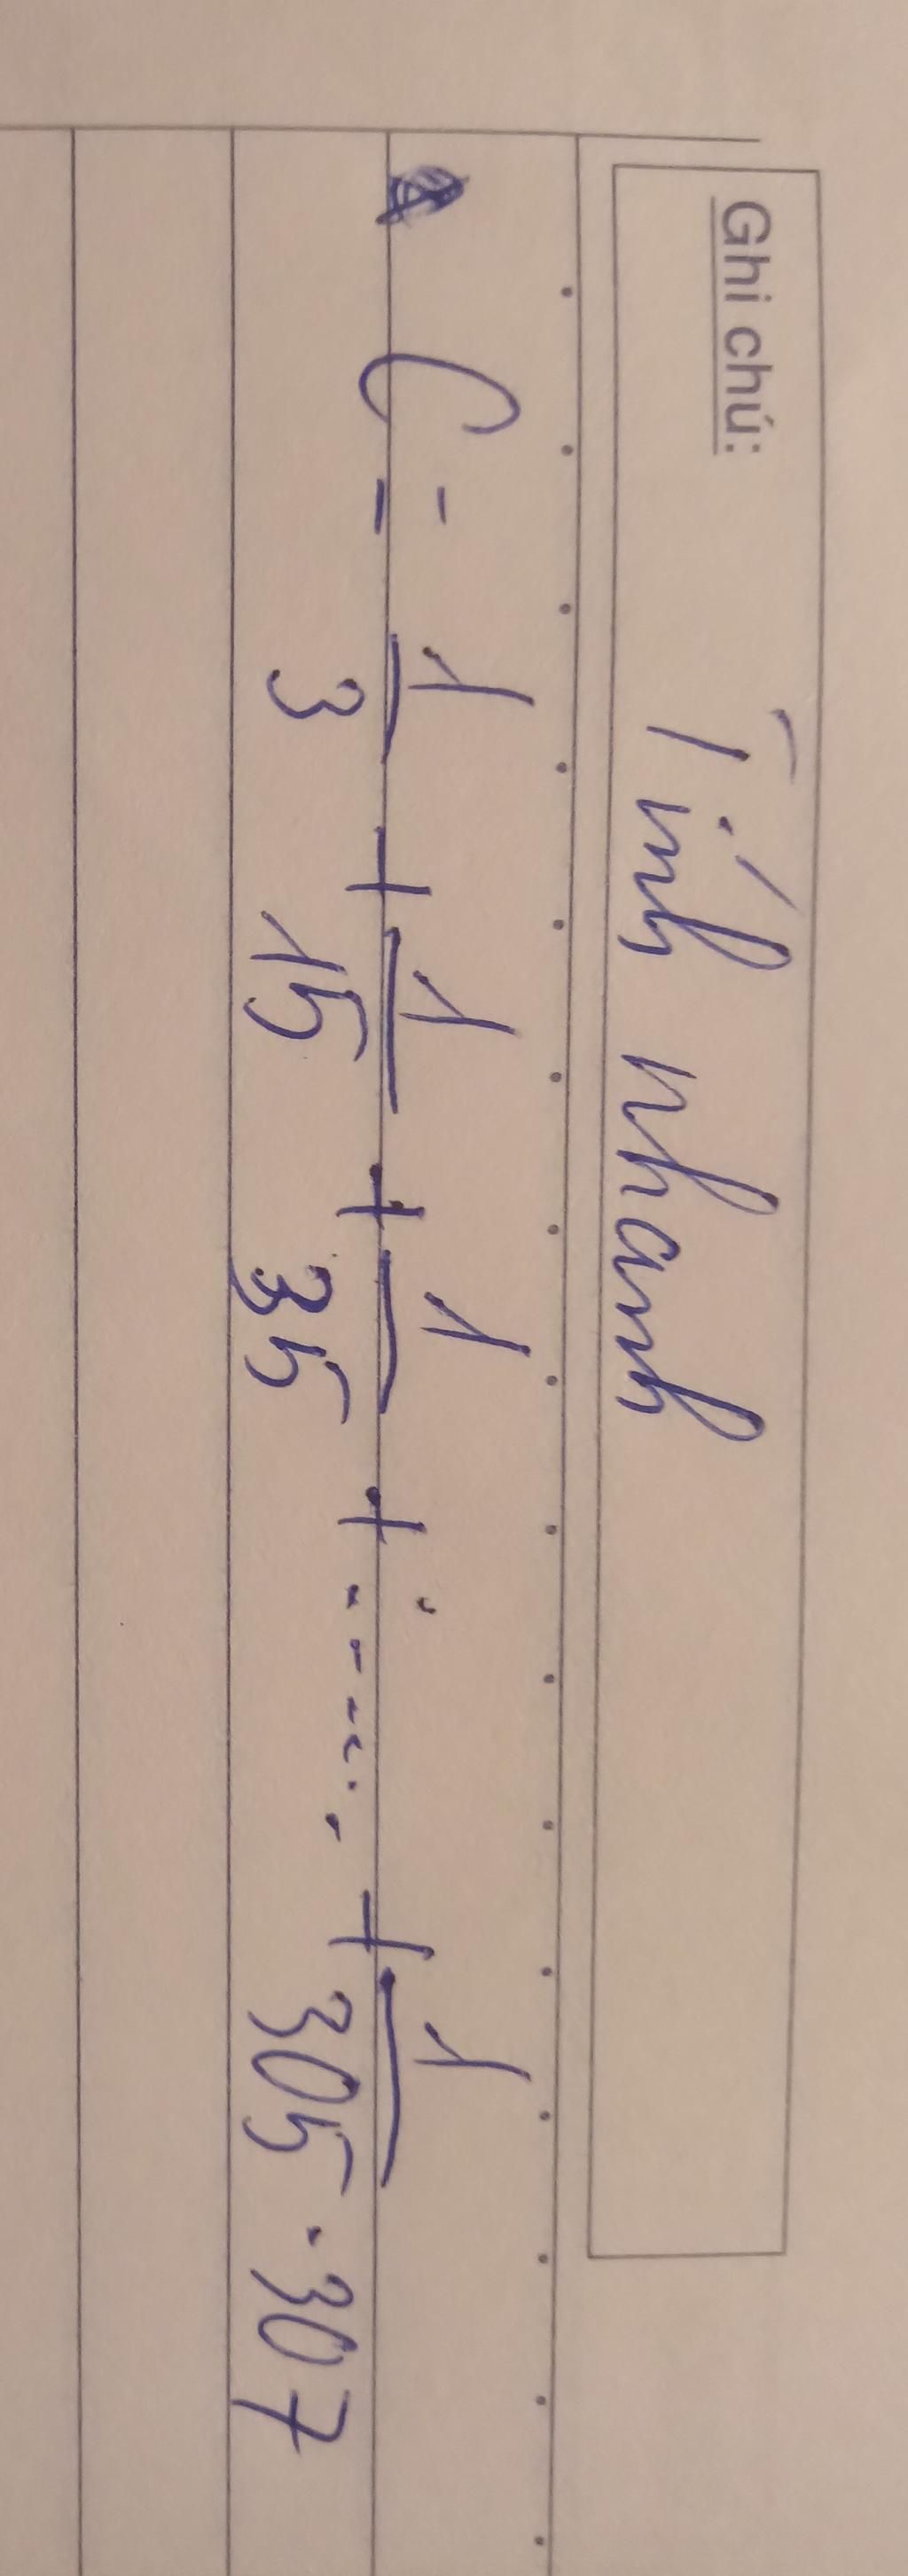 Ghi chú:
Tính nhanh
C = 1/3 + 1/15 + 1/35 + ...... + 1/305.307